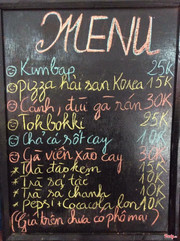 MENU
Kimbap 25K
pizza hải sản Korea 15K
Cánh, đùi gà rán 30K
Tokbokki 25K
Chả cá sốt cay 10K
Gà viên xào cay 30K
Trà đào kem 15K
Trà sả tắc 10K
Trà sữa 10K
Pepsi + Cocacola lon 10K
(Giá trên chưa có phô mai)